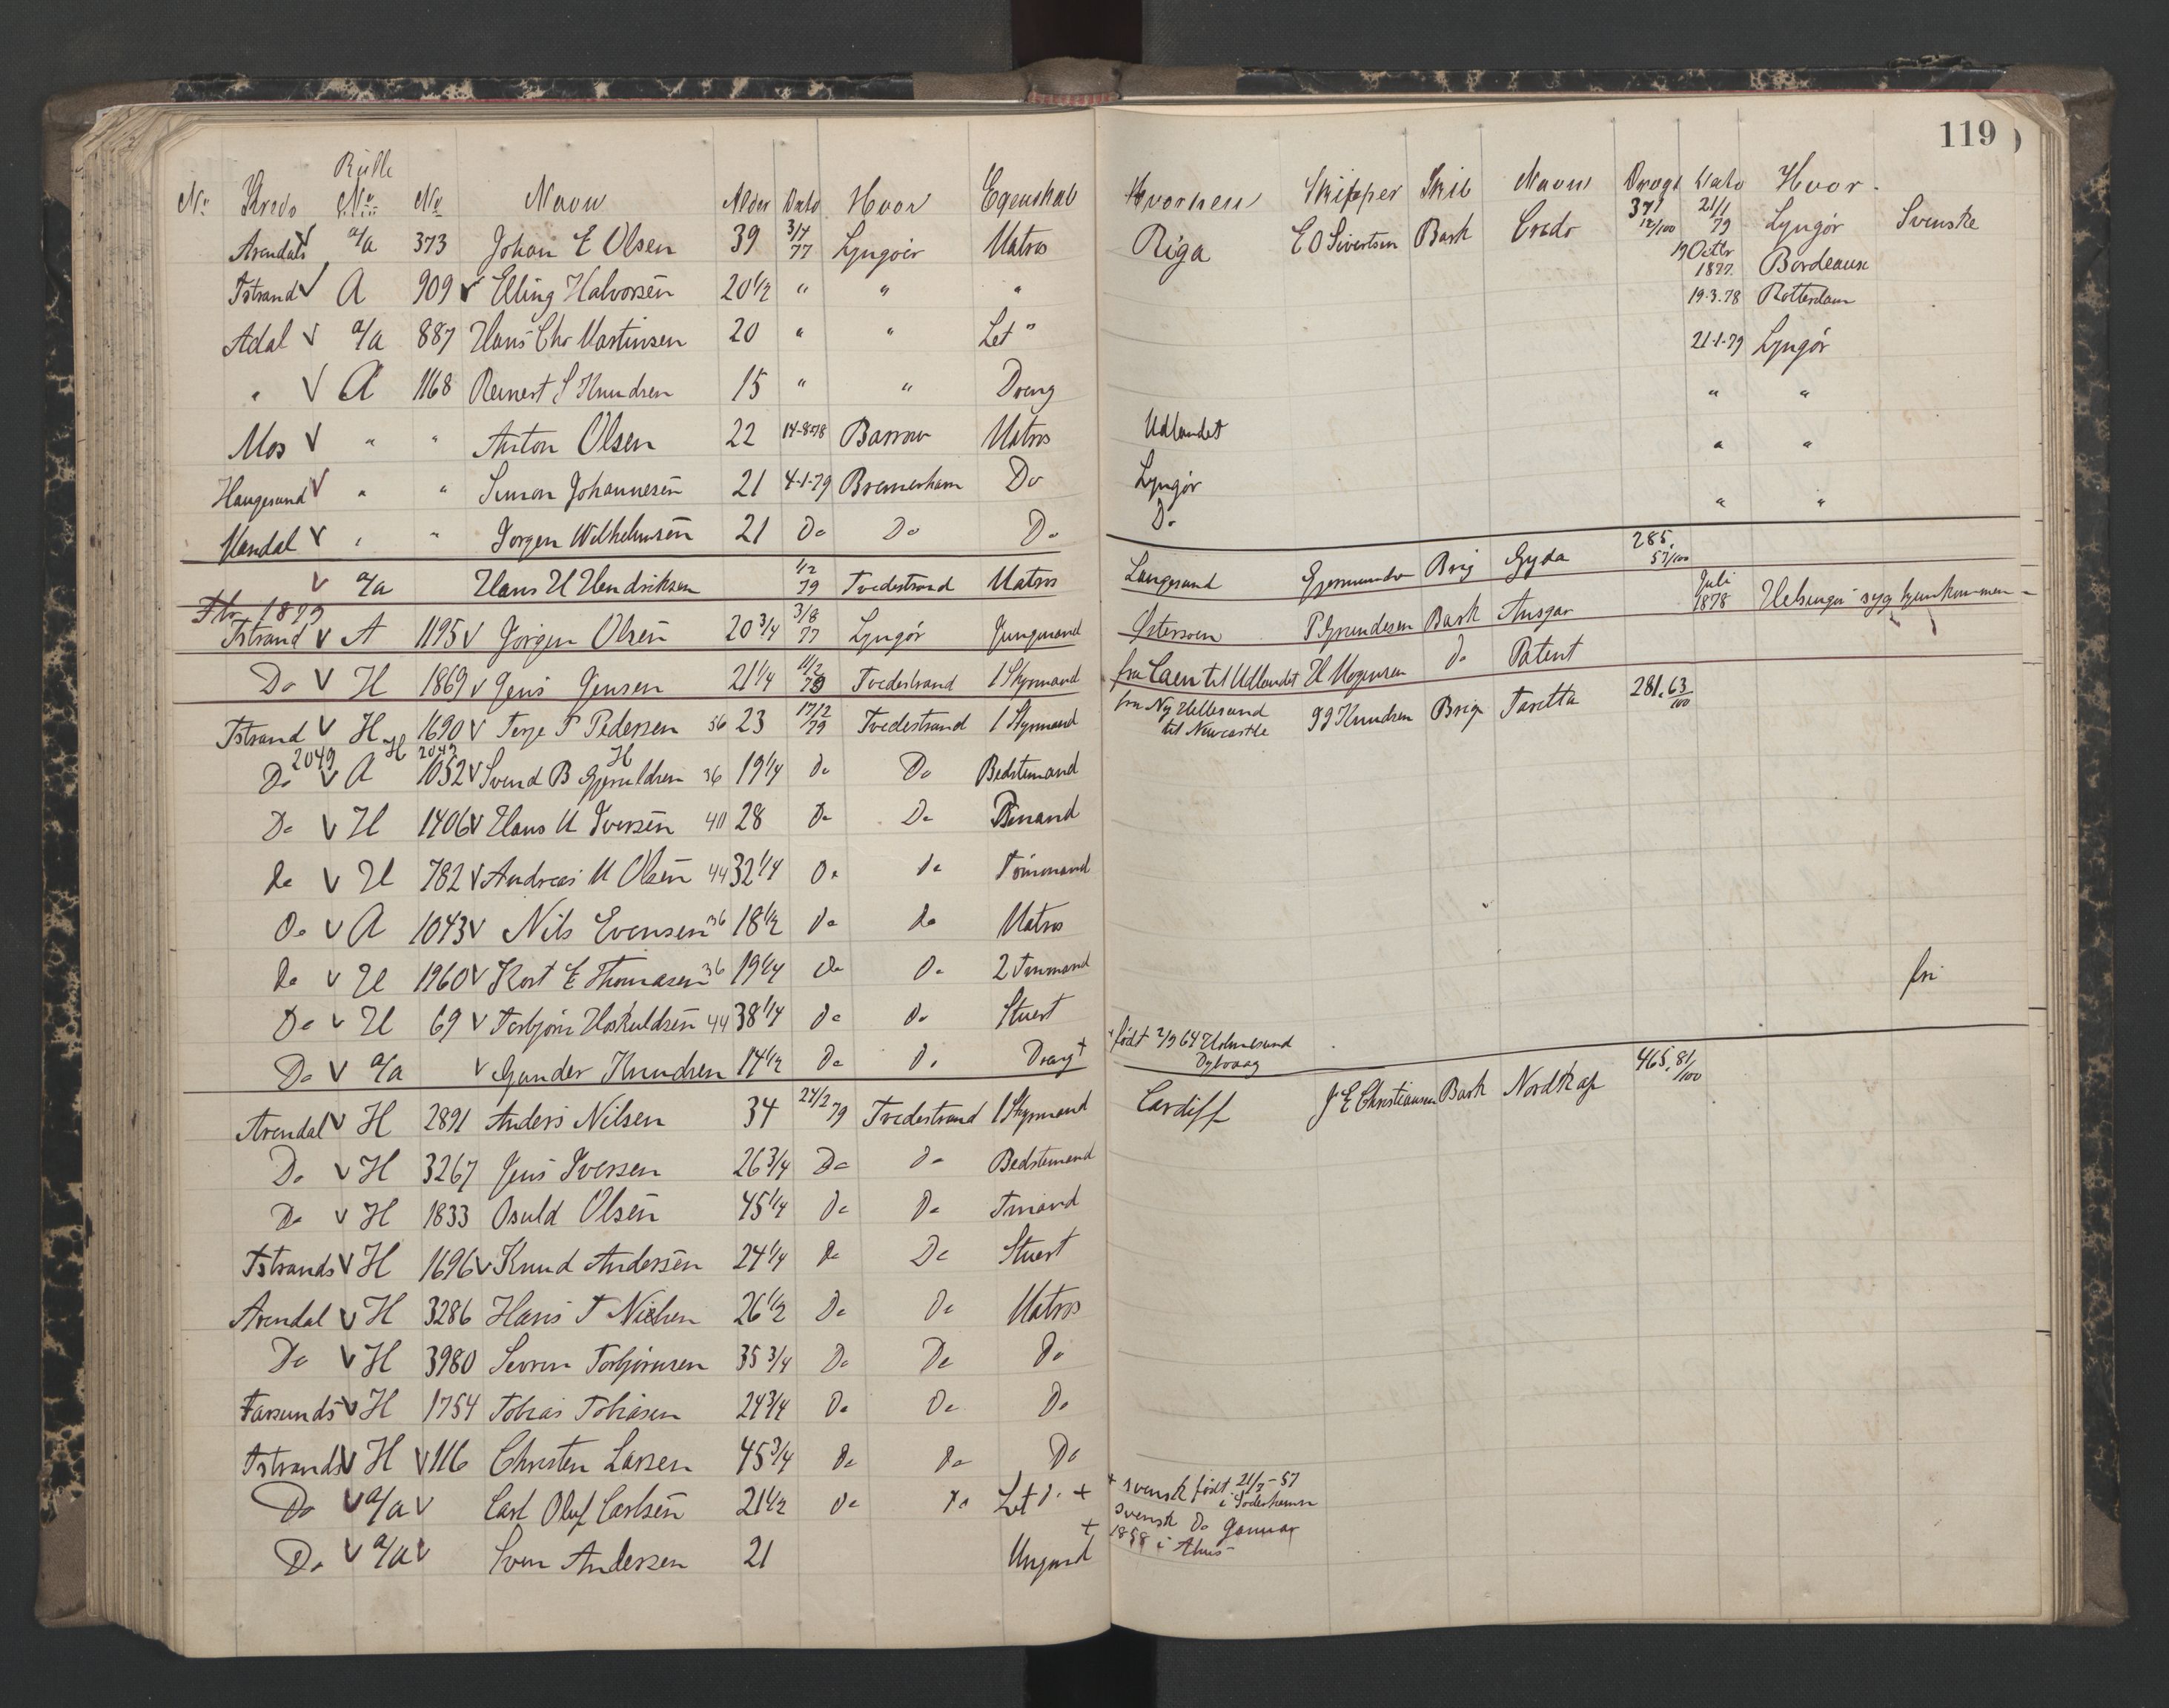 119
Rulle
No Kreds No No Navn Alder Dato Hvor Egenskab Hvorhen Skipper Skib Navn Drægt Dato Hvor
Arendals a/a 373 Johan E Olsen 39 3/7 77 Lyngöer Matros Riga E O Sivertsen Bark Credo 371 12/100 21/1 79 Lyngör Svenske
Tstrand A 909 Elling Halvorsen 20 1/2 " " " 19 Octbr 1877 Bordeaux
Adal a/a 887 Hans Chr Martinsen 20 " " Let " 19-3-78 Rotterdam
21-1-79 Lyngör
" A 1168 Reinert S Knudsen 15 " " Dreng " "
Mos " " Anton Olsen 22 14-8-78 Barrow Matros Udlandet " "
Haugesund " " Simon Johannesen 21 4-1-79 Bremerhavn Do Lyngör " "
Mandal " " Jörgen Wilhelmsen 21 Do Do Do Do
a/a Hans M Hendriksen 1/2 79 Tvedestrand Matros Langesund Brig Gyda 285. 57/100
1879
Tstrand A 1195 Jörgen Olsen 20 3/4 3/8 77 Lyngör Jungmand Östersoen P Bark Ansgar Juli 1878 Helsingör syg hjemkommen
Do H 1869 Jens Jensen 21 1/4 11/2 79 Tvedestrand 1 Styrmand fra Caen til Udlandet H Mogensen do Patent
Tstrand H 1690 Terje T Pedersen 36 23 17/2 79 Tvedestrand 1 Styrmand fra Ny Hellesund til Newcastle Knudsen Brig Taretta 281.63/100
2049 H 2049 H
Do A 1052 Svend B Gjeruldsen 36 19 1/4 do Do Bedstemand
Do H 1406 Hans M Iversen 40 28 Do Do Bmand
do H 782 Andreas M Olsen 44 32 1/4 Do do Tömmand
Do A 1043 Nils Evensen 36 18 1/2 do do Matros
do H 1960 Kort E Thomasen 36 19 1/4 do Do 2 Tömmand fri
Do H 69 Torbjörn Hoskuldsen 44 38 1/4 do do Stuert
Do a/a Gunder Knudsen 14 1/2 Do Do Dreng + + födt 2/9 64 Holmesund Dybvaag
Arendal H 2891 Anders Nilsen 34 24/2 79 Tvedestrand 1 Styrmand Cardiff J E Christiansen Bark Nordkap 465,81/100
Do H 3267 Jens Iversen 26 3/4 Do do Bedstemand
Do H 1833 Osuld Olsen 45 1/4 do Do Tmand
Tstrands H 1696 Knud Andersen 24 1/4 do Do Stuert
Arendal H 3286 Hans T Nielsen 26 1/2 Do do Matros
Do H 3980 Sevren Torbjörnsen 35 3/4 Do Do do
Farsunds H 1754 Tobias Tobiasen 24 3/4 Do Do Do
Tstrands H 116 Christen Larsen 45 3/4 do do Do
Do a/a Carl Oluf Carlsen 21 1/2 do do Let do + + svensk födt 21/7-57 i Söderhamn
Do a/a Sven Andersen 21 Ungmd + svensk Do Januar 1858 i Åhus